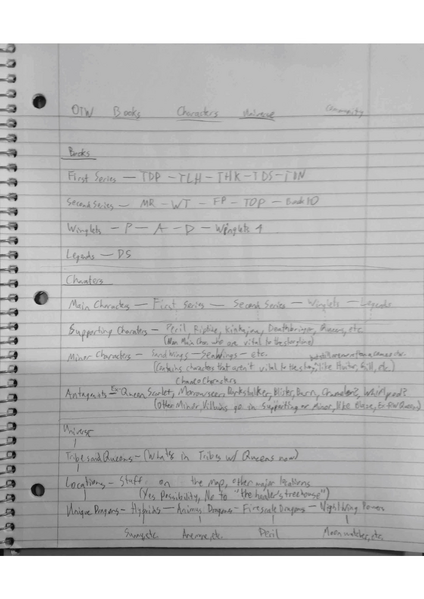 OTW Books Characters Universe Community
Books
First Series — TDP — TLH — THK — TDS — TBN
Second Series — MR — WT — FP — TOP — Book 10
Winglets — P — A — D — Winglets 4
Legends — DS
Characters
Main Characters — First Series — Second Series — Winglets — Legends
Supporting Characters — Peril, Riptide, Kinkajou, Deathbringer, Queens, etc.
(Non Main Char who are vital to the storyline)
Minor Characters — SandWings — SeaWings — etc.
(Contains characters that aren't vital to the story, like Hunter, Gill, etc.)
Chance Characters
Antagonists Ex: Queen Scarlet, Morrowseer, Darkstalker, Blister, Burn, Chameleon?, Whirlpool?
(Other Minor Villains go in supporting or minor, like these,
Universe
Tribes and Queens — (What's in Tribes w/ Queens now)
Locations — Stuff on the map, other major locations
(Yes Possibility, No to "the hunter's treehouse")
Unique Dragons — Hybrids — Animus Dragons — Firescale Dragons — NightWing Powers
Sunny etc. Anemone, etc. Peril Moonwatcher, etc.